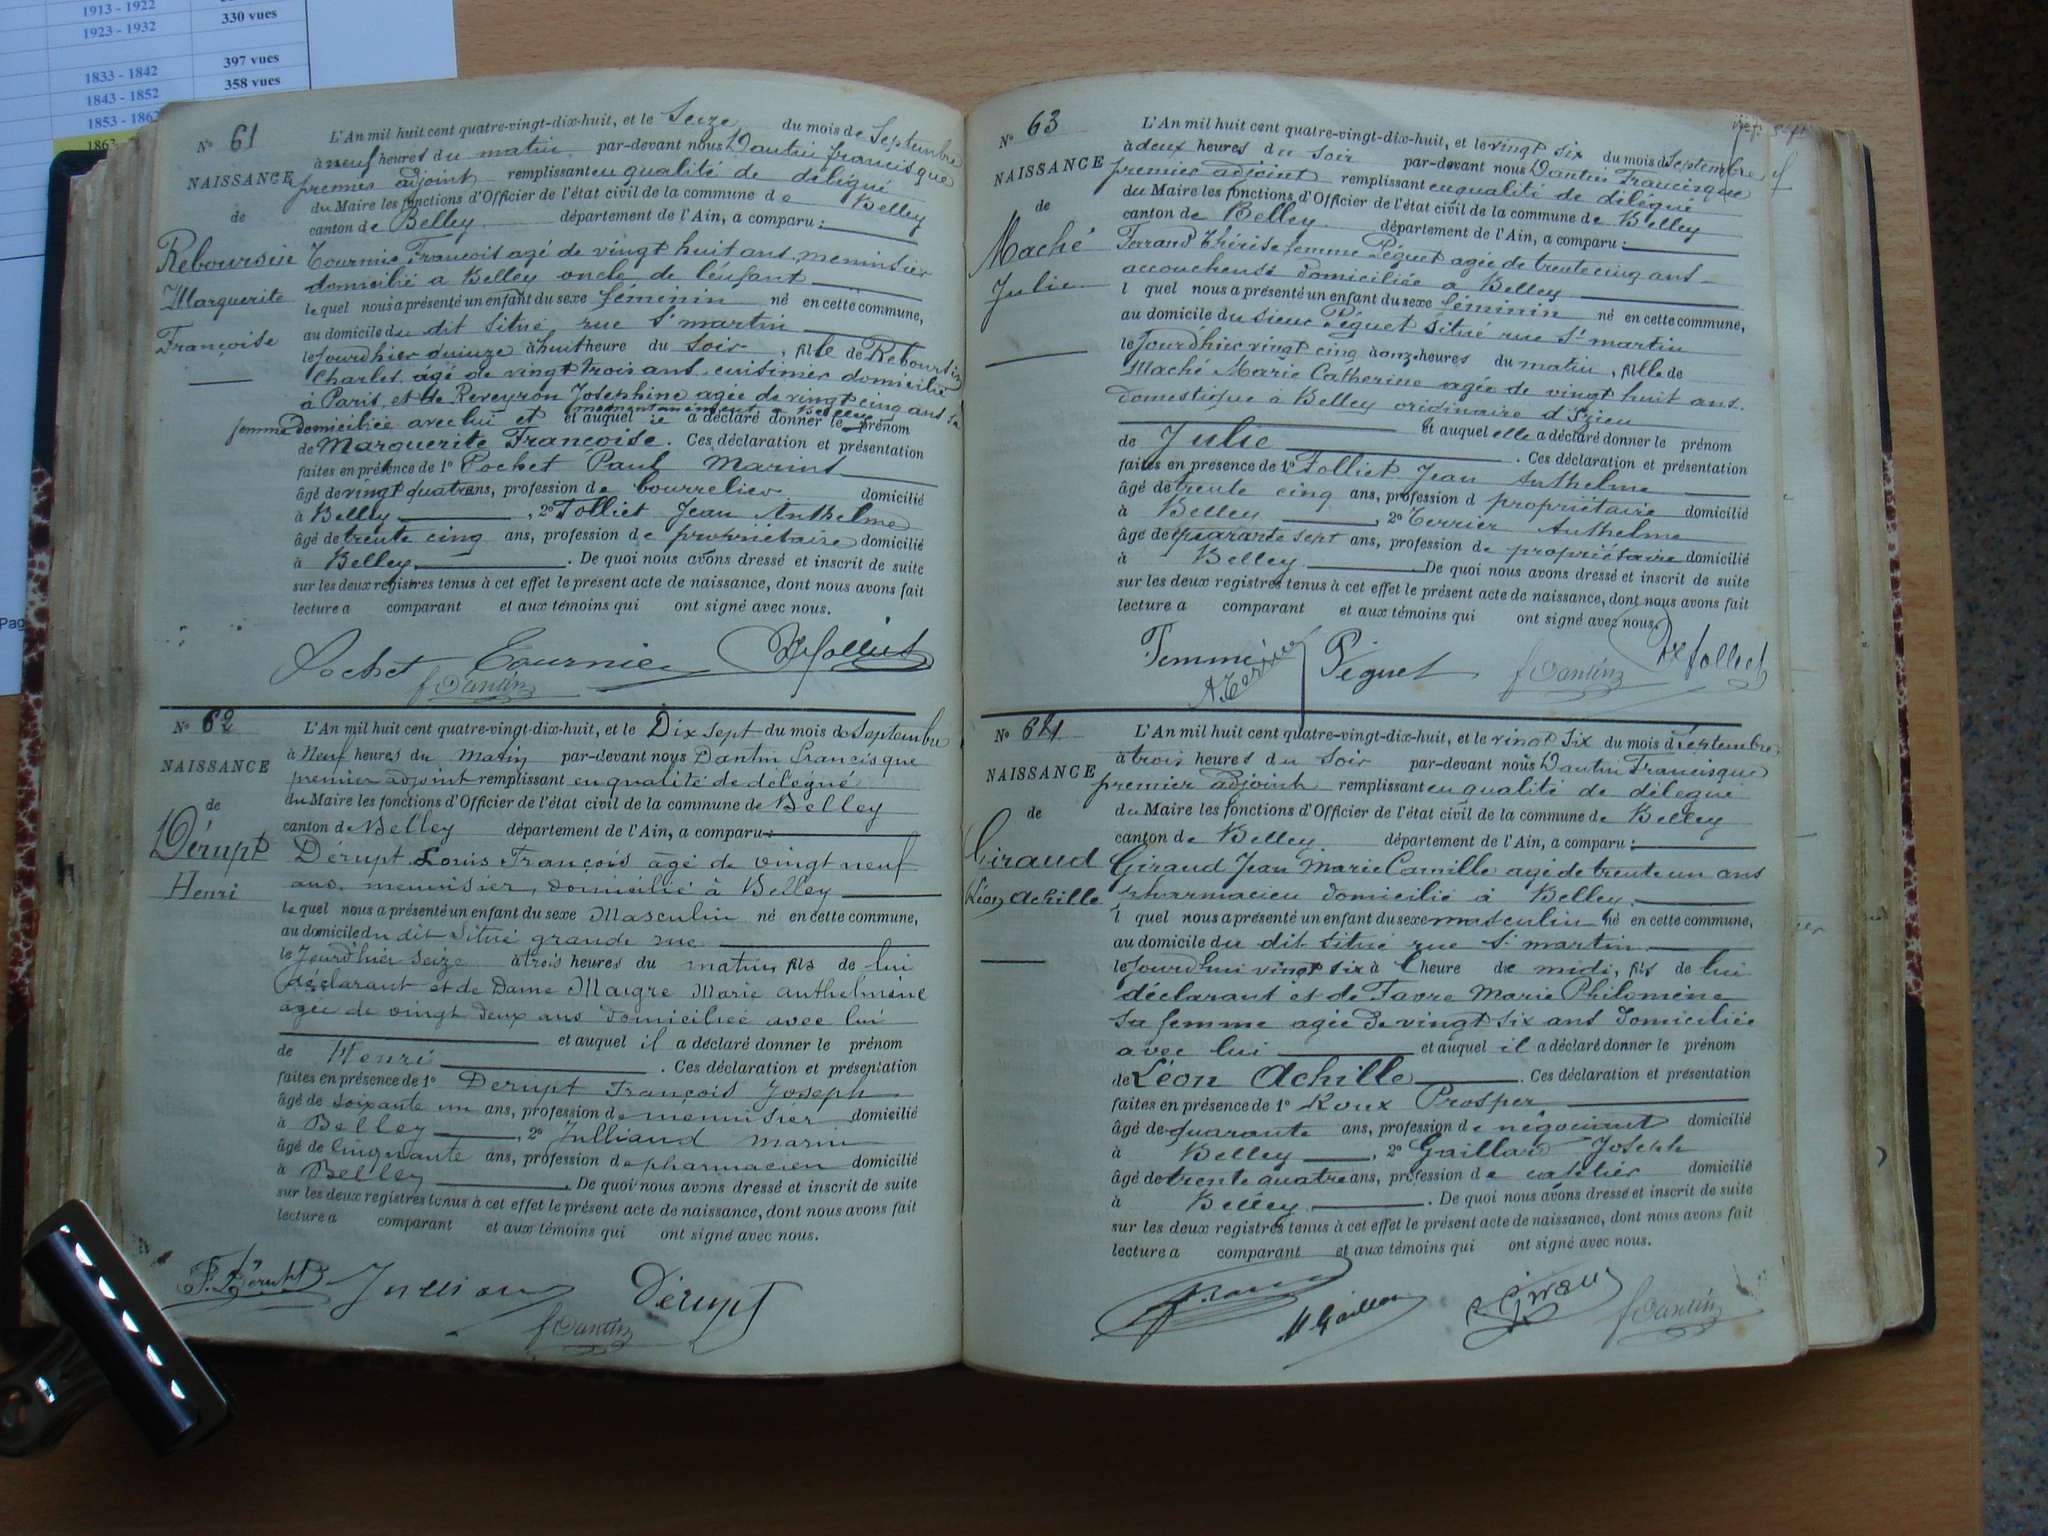 1913 - 1922
1923 - 1932
330 vues
1833 - 1842
397 vues
1843 - 1852
358 vues
1853 - 1862
Pag
N° 61
NAISSANCE
de
Reboursin
Marguerite
Françoise
L'An mil huit cent quatre-vingt-dix-huit, et le Seize du mois de Septembre
à neuf heures du matin par-devant nous Dantin francisque
premier adjoint remplissant en qualité de délégué
du Maire les fonctions d'Officier de l'état civil de la commune de Belley
canton de Belley département de l'Ain, a comparu :
Tournier François agé de vingt huit ans menuisier
domicilié a Belley oncle de l'enfant
le quel nous a présenté un enfant du sexe féminin né en cette commune,
au domicile du dit situé rue St martin
le jourdhier quinze à huit heure du soir, fille de Reboursin
Charles âgé de vingt trois ans cuisinier domicilié
à Paris et de Reveyron Josephine agée de vingt cinq ans sa
femme domiciliée avec lui et momentanément a Belley
et auquel il a déclaré donner le prénom
de Marguerite Françoise. Ces déclaration et présentation
faites en présence de 1° Pochet Paul Marius
âgé de vingt quatre ans, profession de bourrelier domicilié
à Belley, 2° Folliet Jean Anthelme
âgé de trente cinq ans, profession de propriétaire domicilié
à Belley. De quoi nous avons dressé et inscrit de suite
sur les deux registres tenus à cet effet le présent acte de naissance, dont nous avons fait
lecture a comparant et aux témoins qui ont signé avec nous.
Pochet Tournier Folliet
f Dantin
N° 62
NAISSANCE
de
Dérupt
Henri
L'An mil huit cent quatre-vingt-dix-huit, et le Dix sept du mois de Septembre
à Neuf heures du Matin par-devant nous Dantin Francisque
premier adjoint remplissant en qualité de délégué
du Maire les fonctions d'Officier de l'état civil de la commune de Belley
canton de Belley département de l'Ain, a comparu :
Dérupt Louis François agé de vingt neuf
ans, menuisier, domicilié à Belley
le quel nous a présenté un enfant du sexe Masculin né en cette commune,
au domicile du dit situé grande rue
le Jourd'hier seize à trois heures du matin fils de lui
déclarant et de Dame Maigre Marie anthelmine
agée de vingt deux ans domiciliée avec lui
et auquel il a déclaré donner le prénom
de Henri. Ces déclaration et présentation
faites en présence de 1° Derupt François Joseph
âgé de soixante un ans, profession de menuisier domicilié
à Belley, 2° Julliand marin
âgé de Cinquante ans, profession de pharmacien domicilié
à Belley. De quoi nous avons dressé et inscrit de suite
sur les deux registres tenus à cet effet le présent acte de naissance, dont nous avons fait
lecture a comparant et aux témoins qui ont signé avec nous.
F. Dérupt Dérupt
f Dantin
N° 63
NAISSANCE
de
Maché
Julie
L'An mil huit cent quatre-vingt-dix-huit, et le vingt six du mois de Septembre
à deux heures du soir par-devant nous Dantin Francisque
premier adjoint remplissant en qualité de délégué
du Maire les fonctions d'Officier de l'état civil de la commune de Belley
canton de Belley département de l'Ain, a comparu :
Ferrand Thérèse femme Péguet agée de trente cinq ans
accoucheuse domiciliée a Belley
l quel nous a présenté un enfant du sexe féminin né en cette commune,
au domicile du sieur Péguet situé rue St martin
le jourd'hier vingt cinq à onze heures du matin, fille de
Maché Marie Catherine agée de vingt huit ans.
domestique à Belley originaire d'Izieu
et auquel elle a déclaré donner le prénom
de Julie. Ces déclaration et présentation
faites en présence de 1° Folliet Jean Anthelme
âgé de trente cinq ans, profession d propriétaire domicilié
à Belley, 2° Terrier Anthelme
âgé de quarante sept ans, profession de propriétaire domicilié
à Belley. De quoi nous avons dressé et inscrit de suite
sur les deux registres tenus à cet effet le présent acte de naissance, dont nous avons fait
lecture a comparant et aux témoins qui ont signé avec nous.
Femme Péguet f Dantin Folliet
A Terrier
N° 64
NAISSANCE
de
Giraud
Léon Achille
L'An mil huit cent quatre-vingt-dix-huit, et le vingt six du mois de Septembre
à trois heures du Soir par-devant nous Dantin Francisque
premier adjoint remplissant en qualité de délégué
du Maire les fonctions d'Officier de l'état civil de la commune de Belley
canton de Belley département de l'Ain, a comparu :
Giraud Jean Marie Camille agé de trente un ans
pharmacien domicilié à Belley.
l quel nous a présenté un enfant du sexe masculin né en cette commune,
au domicile du dit situé rue St martin
le jourdhui vingt six à l heure de midi, fils de lui
déclarant et de Favre Marie Philomène
sa femme agée de vingt six ans domiciliée
avec lui et auquel il a déclaré donner le prénom
de Léon Achille. Ces déclaration et présentation
faites en présence de 1° Roux Prosper
âgé de quarante ans, profession de négociant domicilié
à Belley, 2° Gaillard Joseph
âgé de trente quatre ans, profession de domicilié
à Belley. De quoi nous avons dressé et inscrit de suite
sur les deux registres tenus à cet effet le présent acte de naissance, dont nous avons fait
lecture a comparant et aux témoins qui ont signé avec nous.
f Dantin